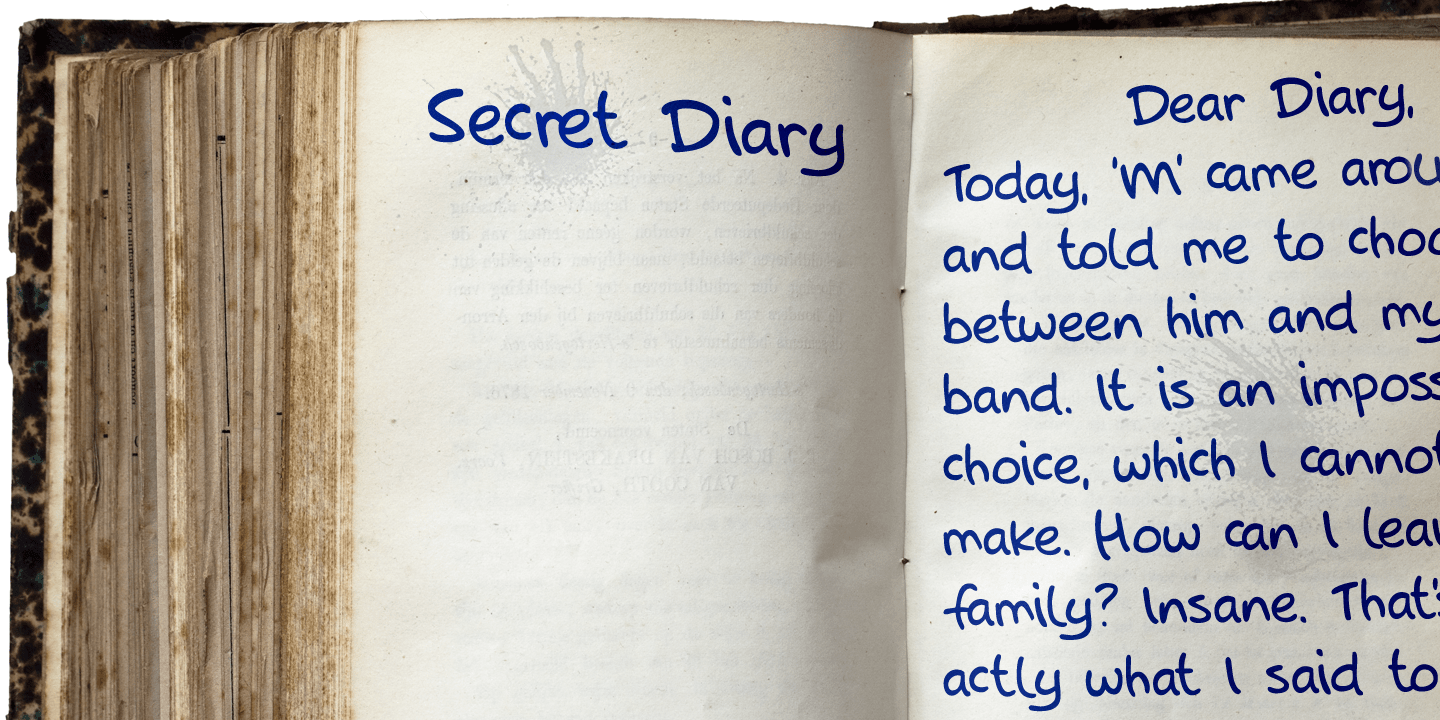 Secret Diary
Dear Diary,
Today, 'M' came arou
and told me to choo
between him and my
band. It is an imposs
choice, which I cannot
make. How can I leav
family? Insane. That's
actly what I said to